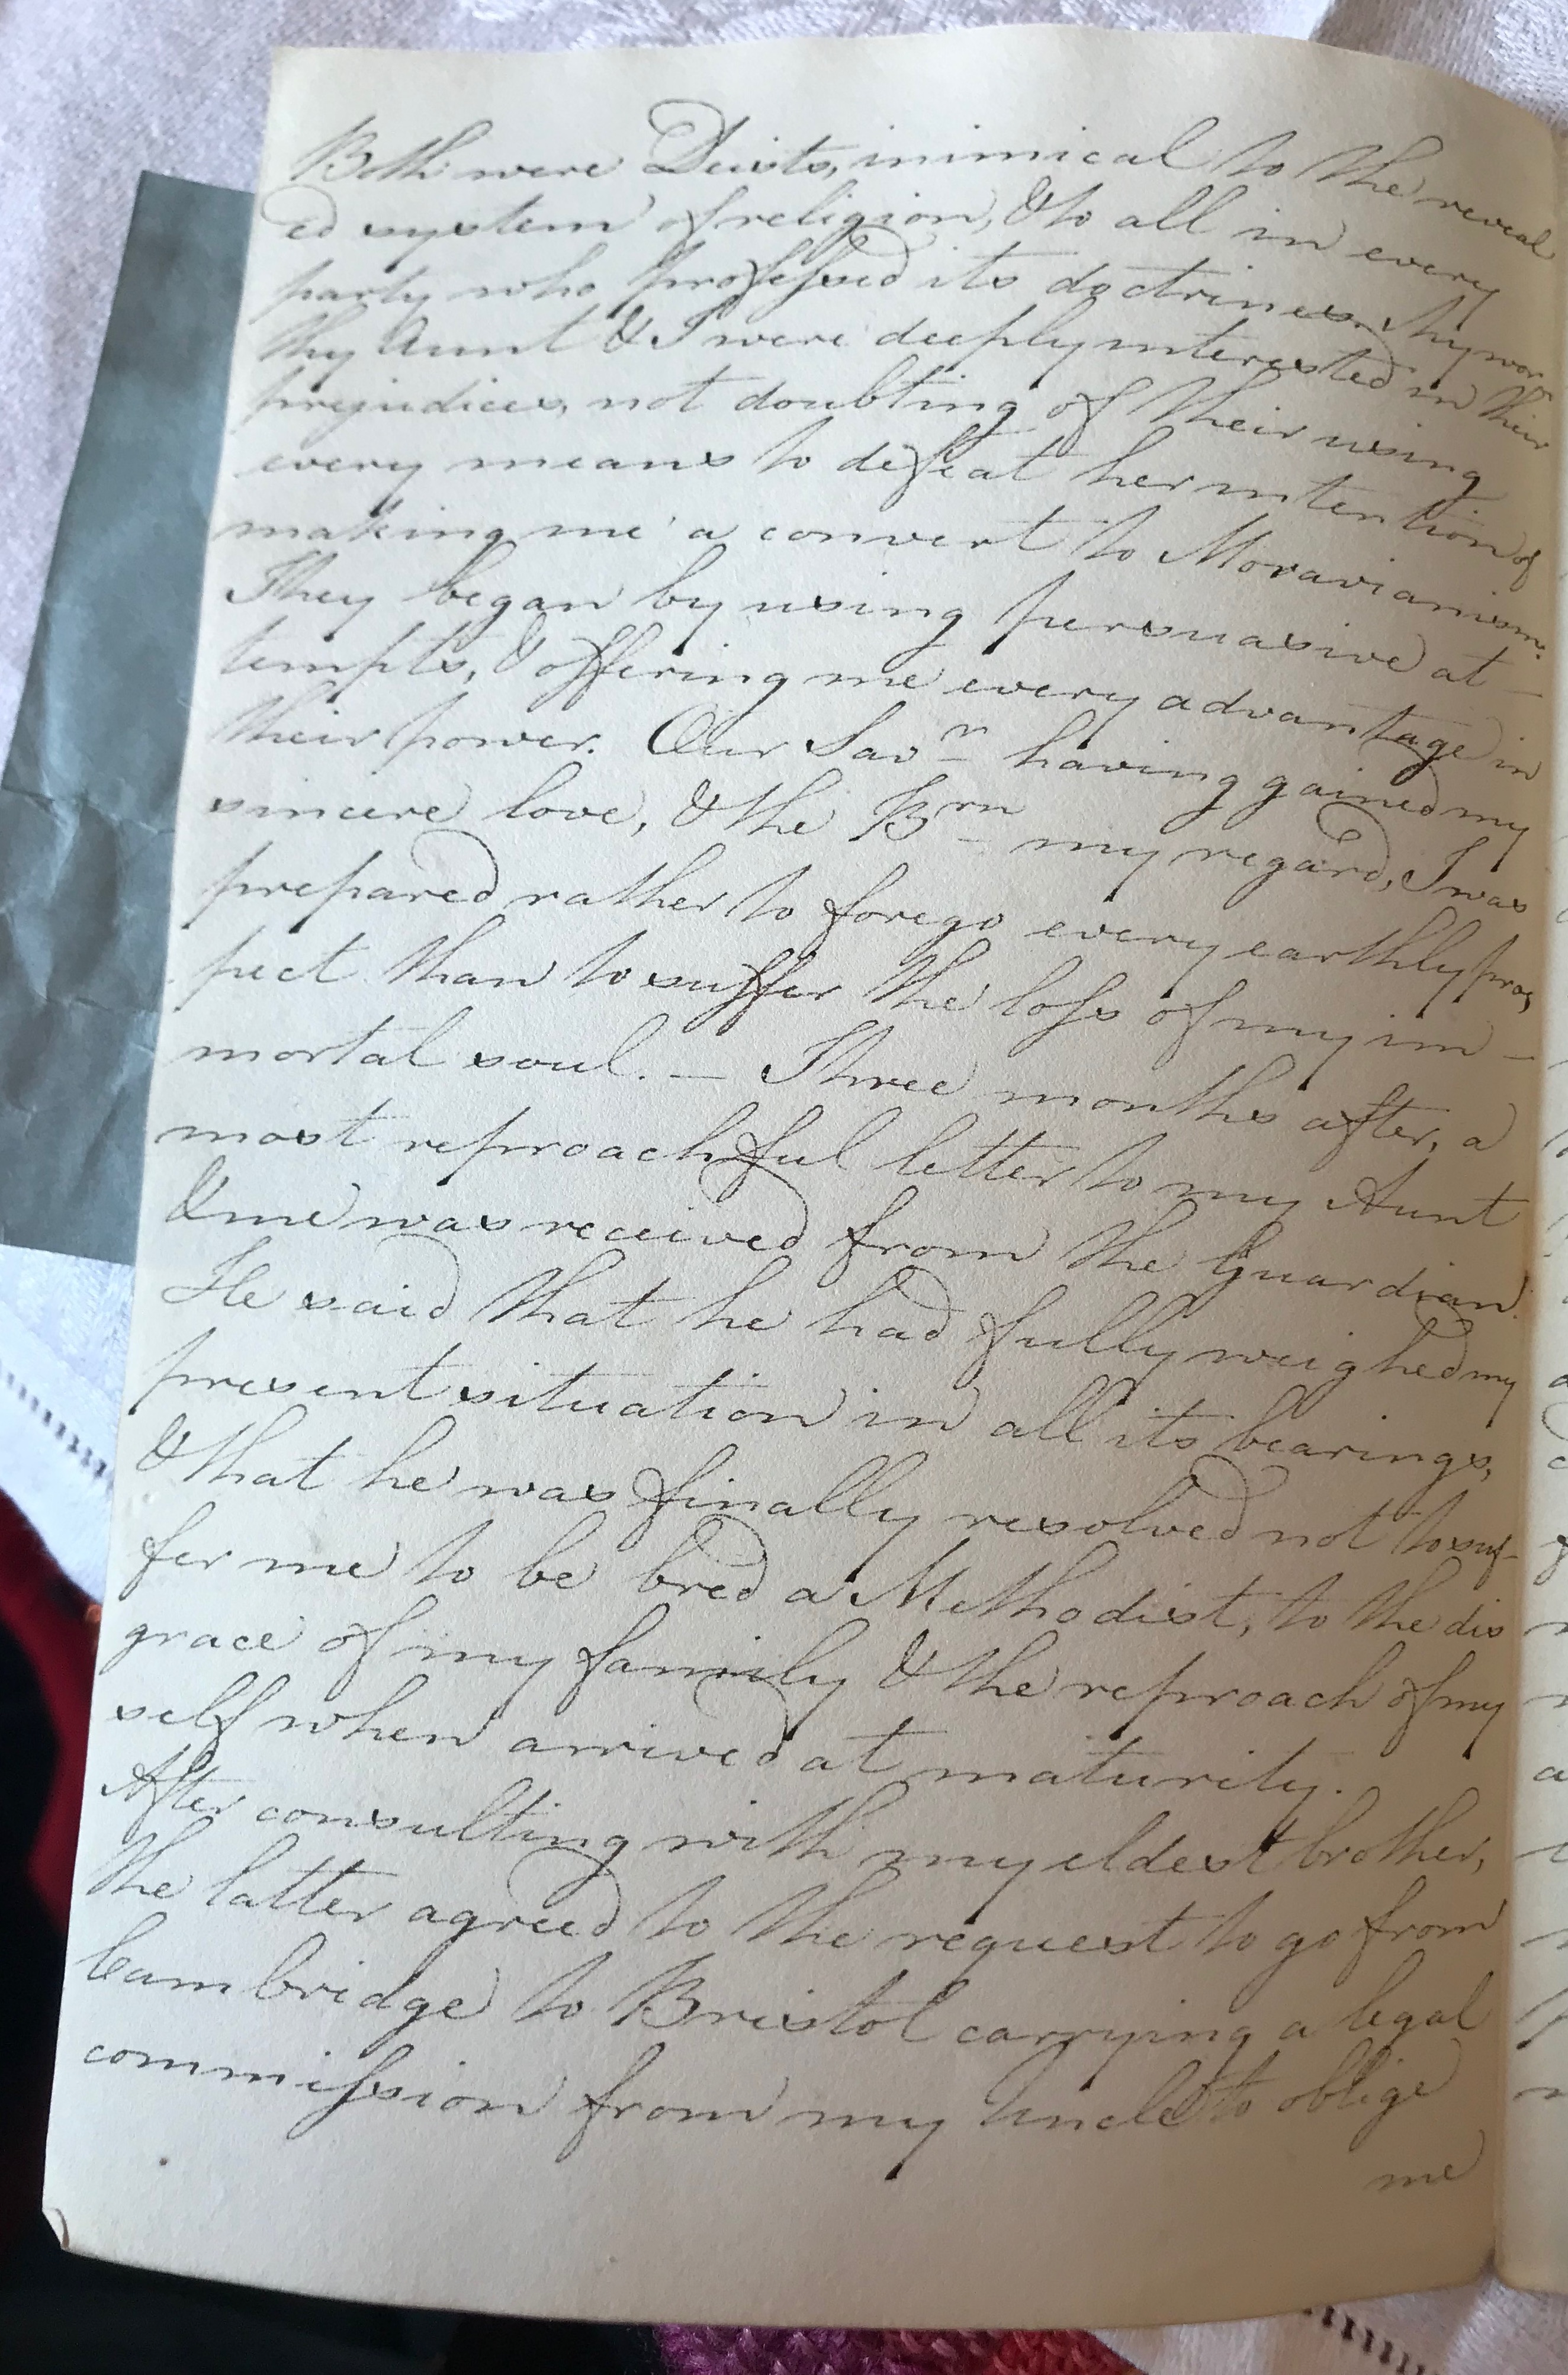 Both were Deists, inimical to the reveal
ed system of religion, & to all in every
party who professed its doctrines. My wor-
thy Aunt & I were deeply interested in their
prejudices, not doubting of their using
every means to defeat her intention of
making me a convert to Moravianism.
They began by using persuasive at-
tempts, & offering me every advantage in
their power. Our Savr having gained my
sincere love, & the Brn my regard, I was
prepared rather to forego every earthly pros
pect than to suffer the loss of my im-
mortal soul. — Three months after, a
most reproachful letter to my Aunt
& me was received from the Guardian.
He said that he had fully weighed my
present situation in all its bearings,
& that he was finally resolved not to suf-
fer me to be bred a Methodist, to the dis
grace of my family & the reproach of my
self when arrived at maturity.
After consulting with my eldest brother,
the latter agreed to the request to go from
Cambridge to Bristol carrying a legal
commission from my Uncle to oblige
me